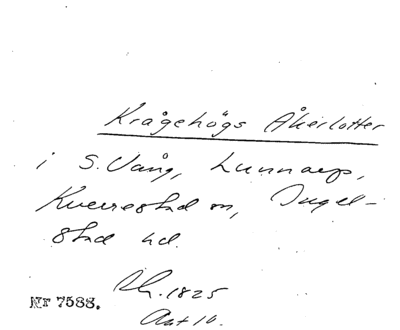 Krågehögs Åkerlotter
i S. Vång, Lunnarp,
Kverrestad sn, Ingel-
stad hd.
Ch. 1825
Akt 10.
Nr 7588.